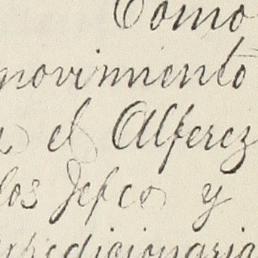 Como
movimiento
el Alferez
los Jefes y
expedicionaria